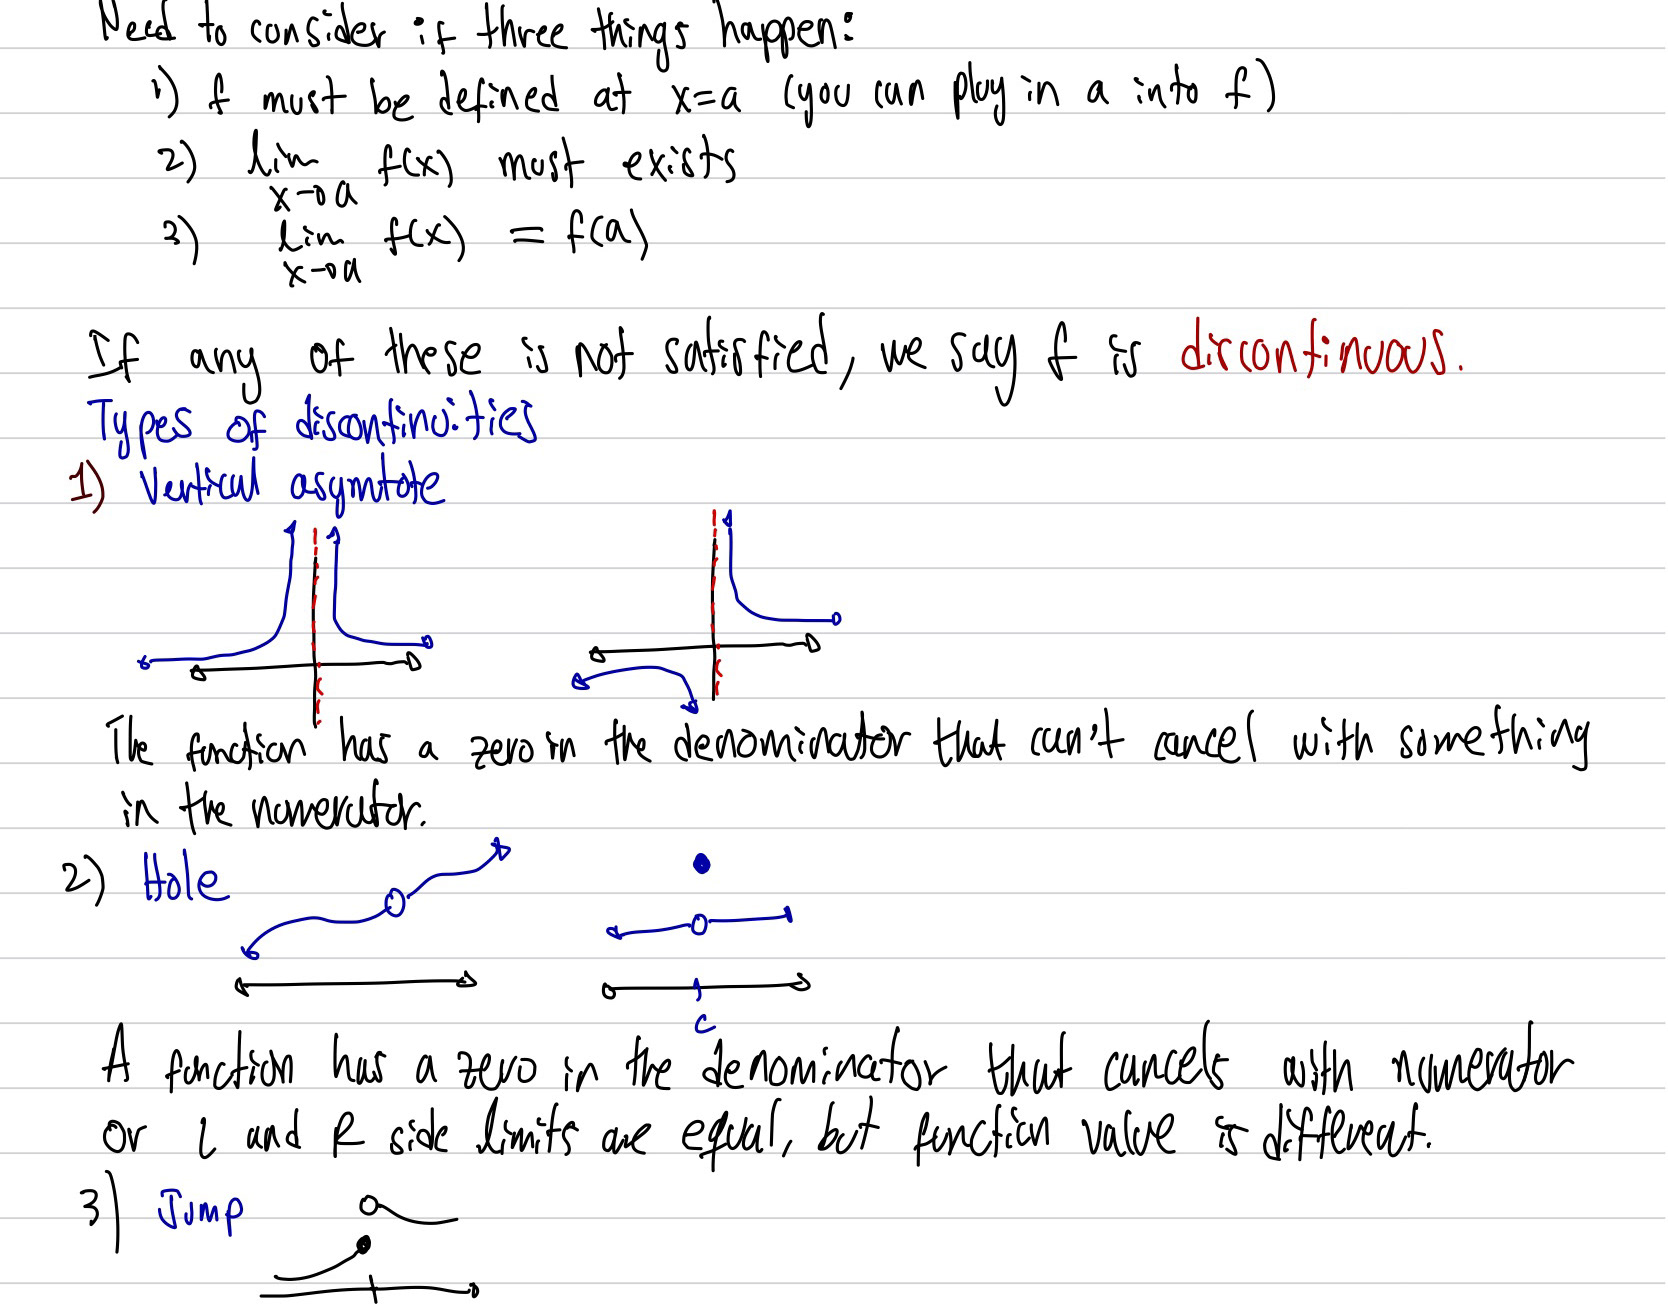 Need to consider if three things happen:
1) f must be defined at x=a (you can plug in a into f)
2) lim f(x) must exists
x→a
3) lim f(x) = f(a)
x→a
If any of these is not satisfied, we say f is discontinuous.
Types of discontinuities
1) Vertical asymtote
The function has a zero in the denominator that can't cancel with something
in the numerator.
2) Hole
c
A function has a zero in the denominator that cancels with numerator
or L and R side limits are equal, but function value is different.
3) Jump